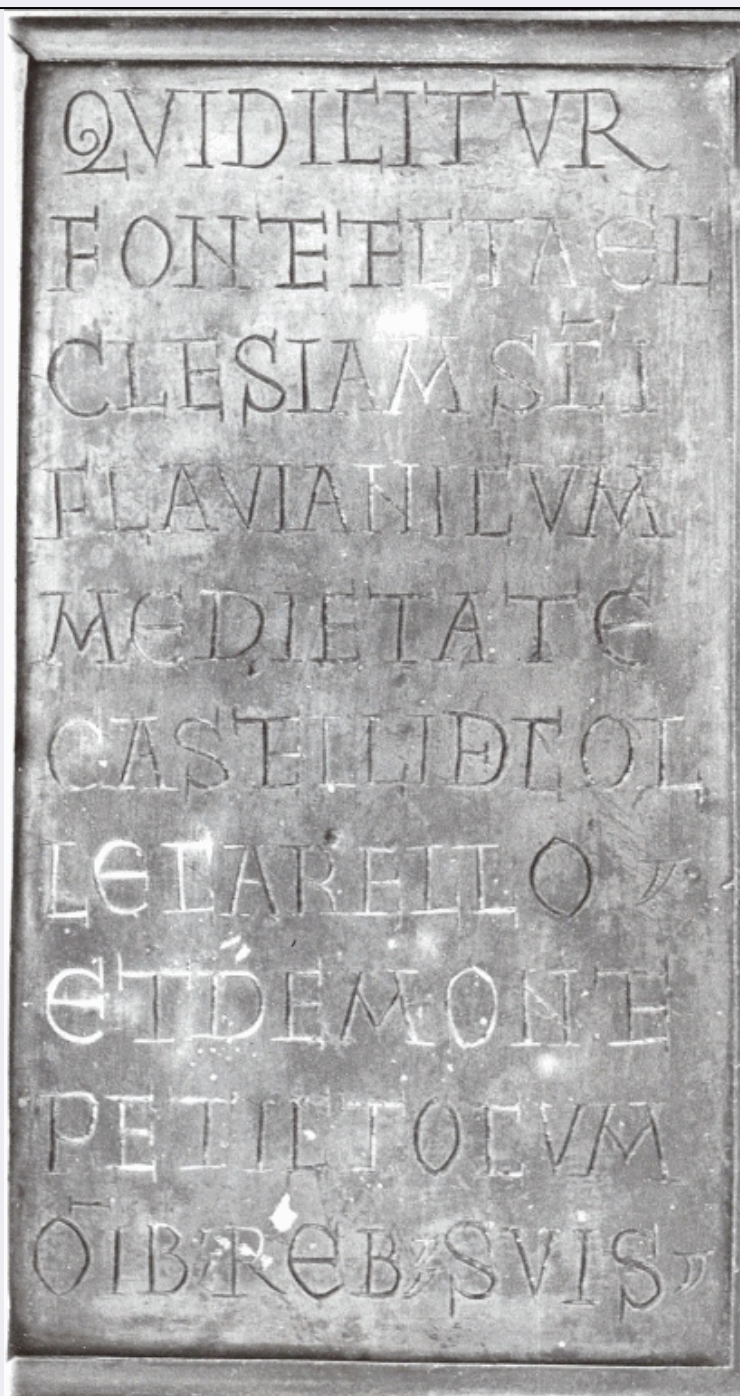 QVI DICITVR
FONTE TECTA EC
CLESIAM SC̄I
FLAVIANI CVM
MEDIETATE
CASTELLI DE COL
LECARELLO
ET DE MONTE
PETICTO CVM
ŌIB REB SVIS